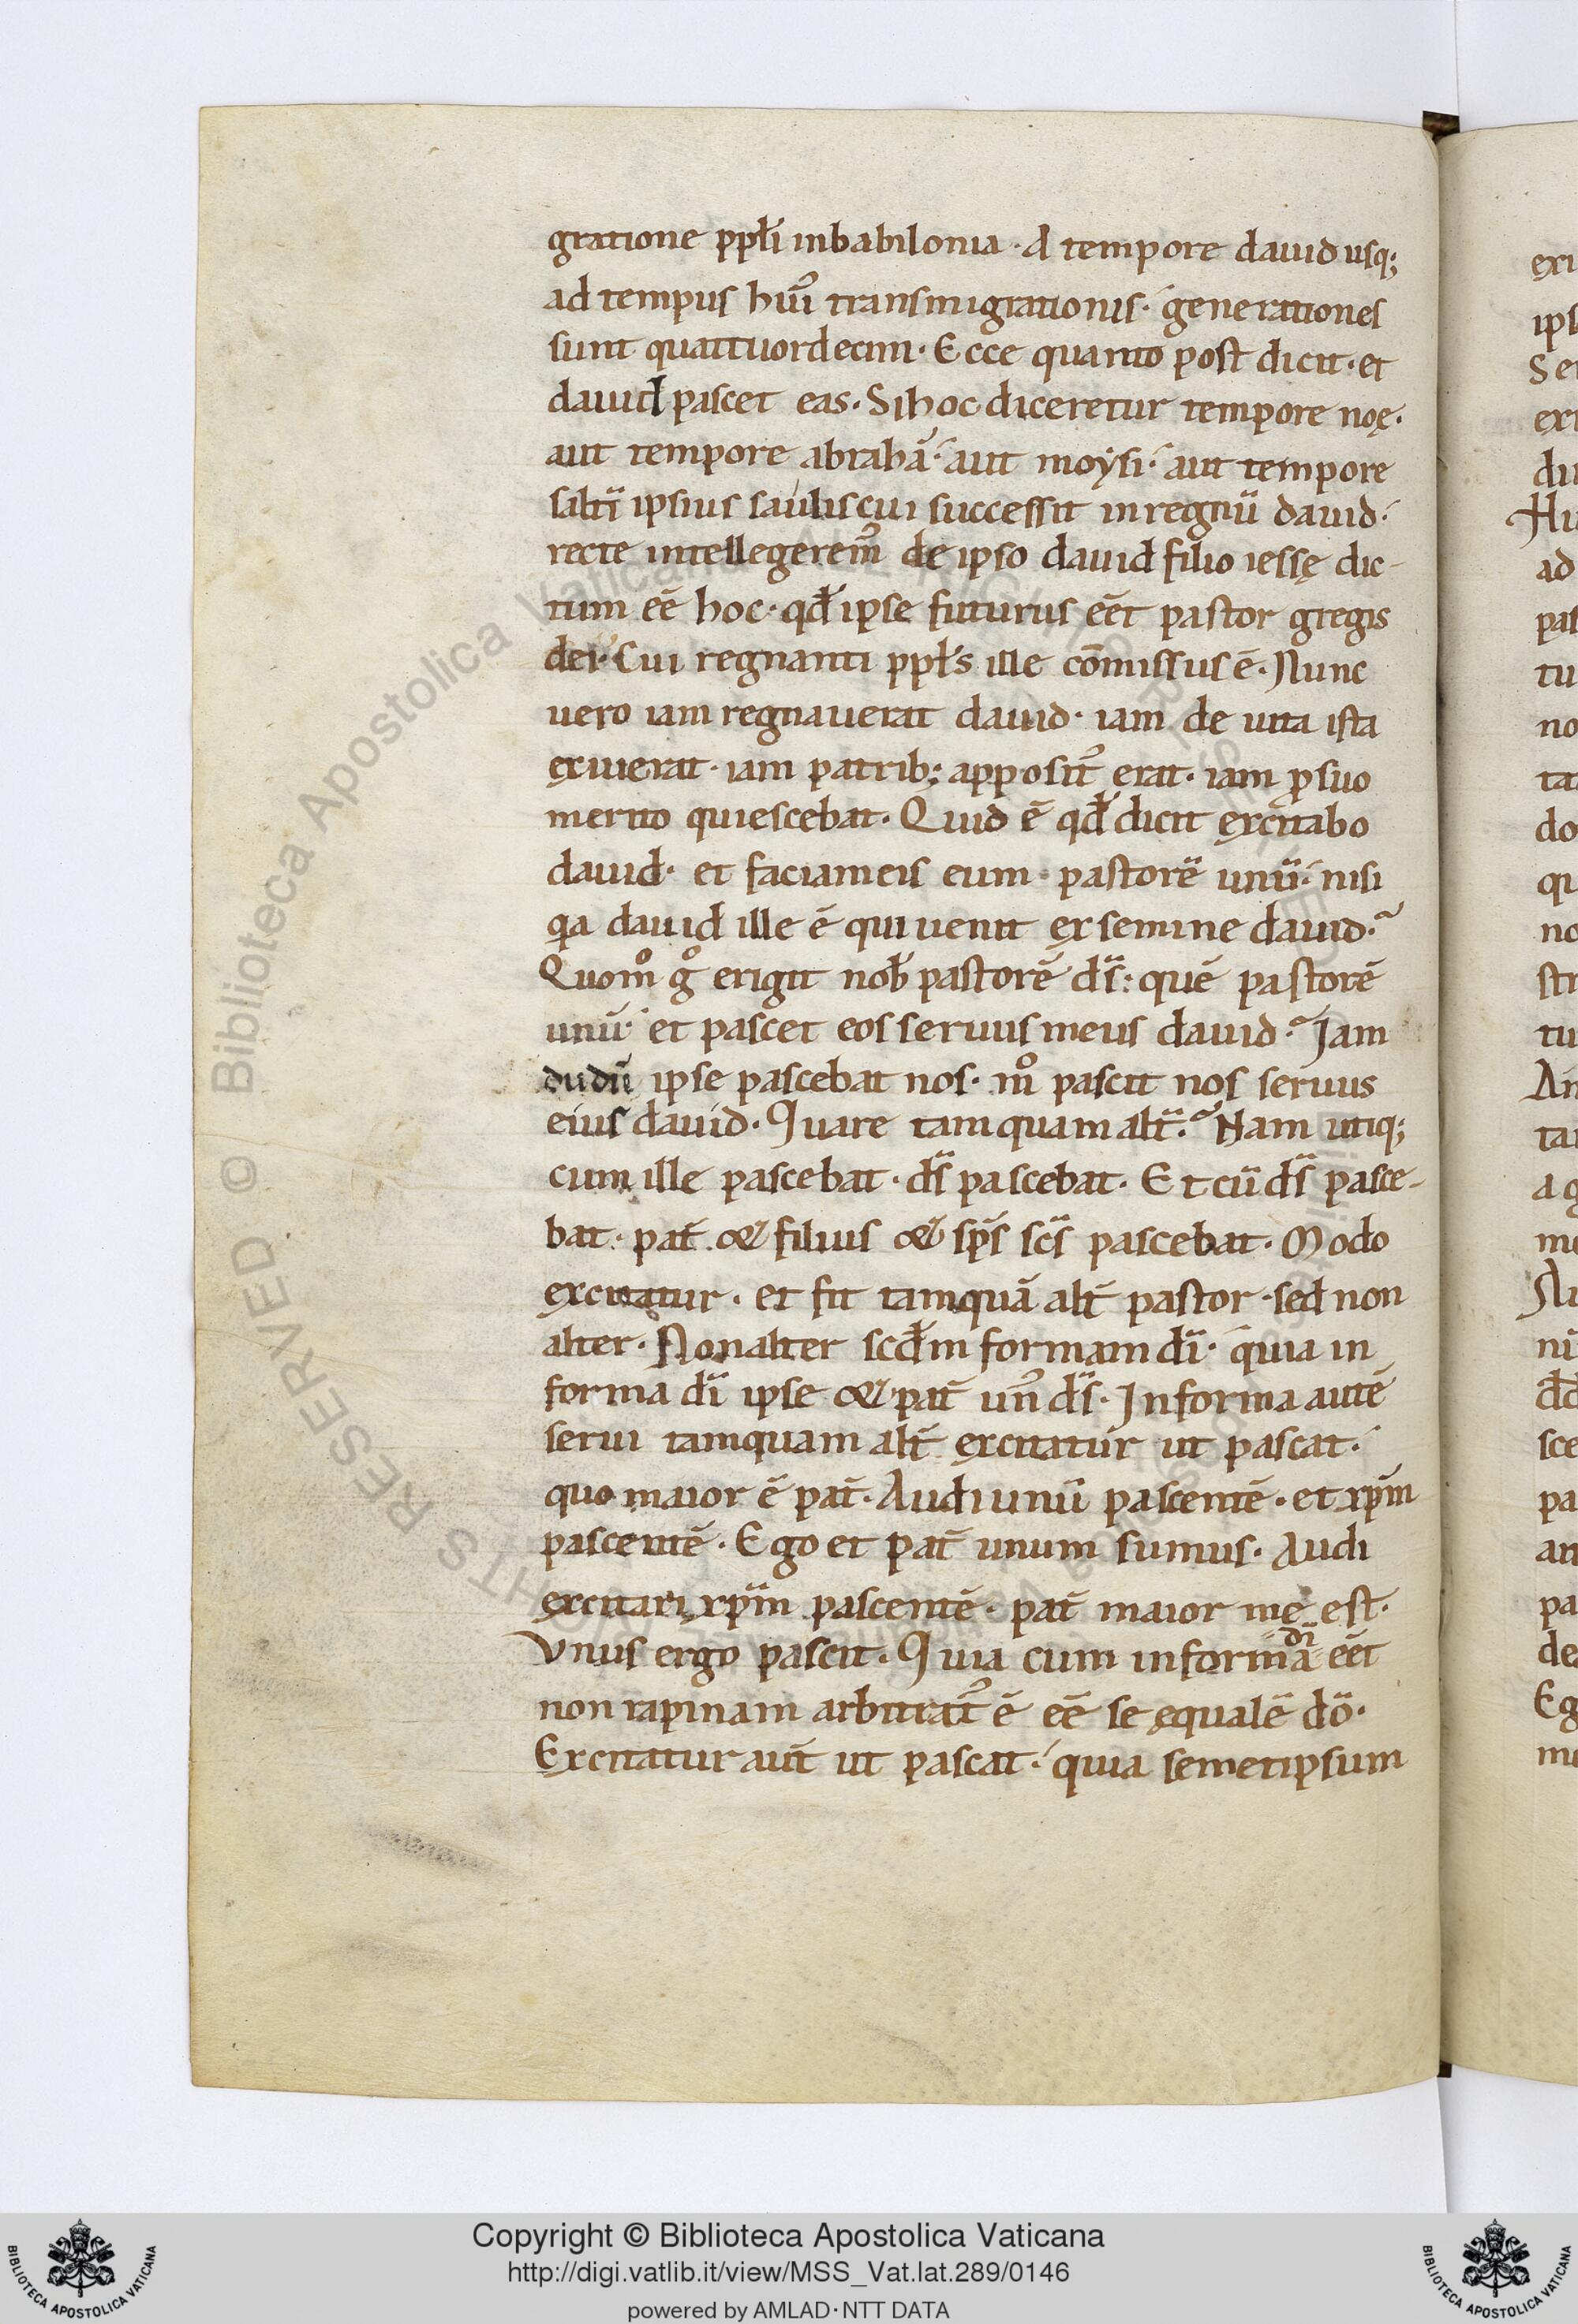 gratione ppłi inbabilonia · A tempore dauid usq;
ad tempus hui᾽ transmigrationis · generationes
sunt quattuordecim · Ecce quanto post dicit · et
dauid pascet eas · Si hoc diceretur tempore noę ·
aut tempore abrahā · aut moysi · aut tempore
saltī ipsius saulis cui successit inregnū dauid ·
recte intellegerem᾽ de ipso dauid filio iessę dic-
tum eē hoc · qđ ipse futurus eēt pastor gregis
dei · Cui regnanti ppłs ille cōmissus ē · Nunc
uero iam regnauerat dauid · iam de uita ista
exiuerat · iam patrib; apposit᾽ erat · iam ꝓ suo
merito quiescebat · Quid ē qđ dicit excitabo
dauid · et faciam eis eum · pastorē unū · nisi
qa dauid ille ē qui uenit ex semine dauid ·~
Quom̊ g̊ erigit nob̄ pastorē ds̄ : quē pastorē
unū · et pascet eos seruus meus dauid ·~ Iam
dudū ipse pascebat nos · m̊ pascit nos seruus
eius dauid · Quare tamquam alt̄ ·~ Nam utiq;
cum ille pascebat · ds̄ pascebat · Et cū ds̄ pasce-
bat · pat̄ & filius & sp̄s sc̄s pascebat · Modo
excitatur · et fit tamquā alt̄ pastor · sed non
alter · Non alter scđm formam dī · quia in
forma dī ipse & pat̄ un᾽ ds̄ · In forma autē
serui tamquam alt̄ excitatur ut pascat ·
quo maior ē pat̄ · Audi unū pascentē · et xp̄m
pascentē · Ego et pat̄ unum sumus · Audi
excitari xp̄m pascentē · pat̄ maior me est ·
Vnus ergo pascit · Quia cum informa dī eēt
non rapinam arbitrat᾽ ē eē se ęqualē dō ·
Excitatur aut̄ ut pascat · quia semetipsum
Copyright © Biblioteca Apostolica Vaticana
http://digi.vatlib.it/view/MSS_Vat.lat.289/0146
powered by AMLAD·NTT DATA